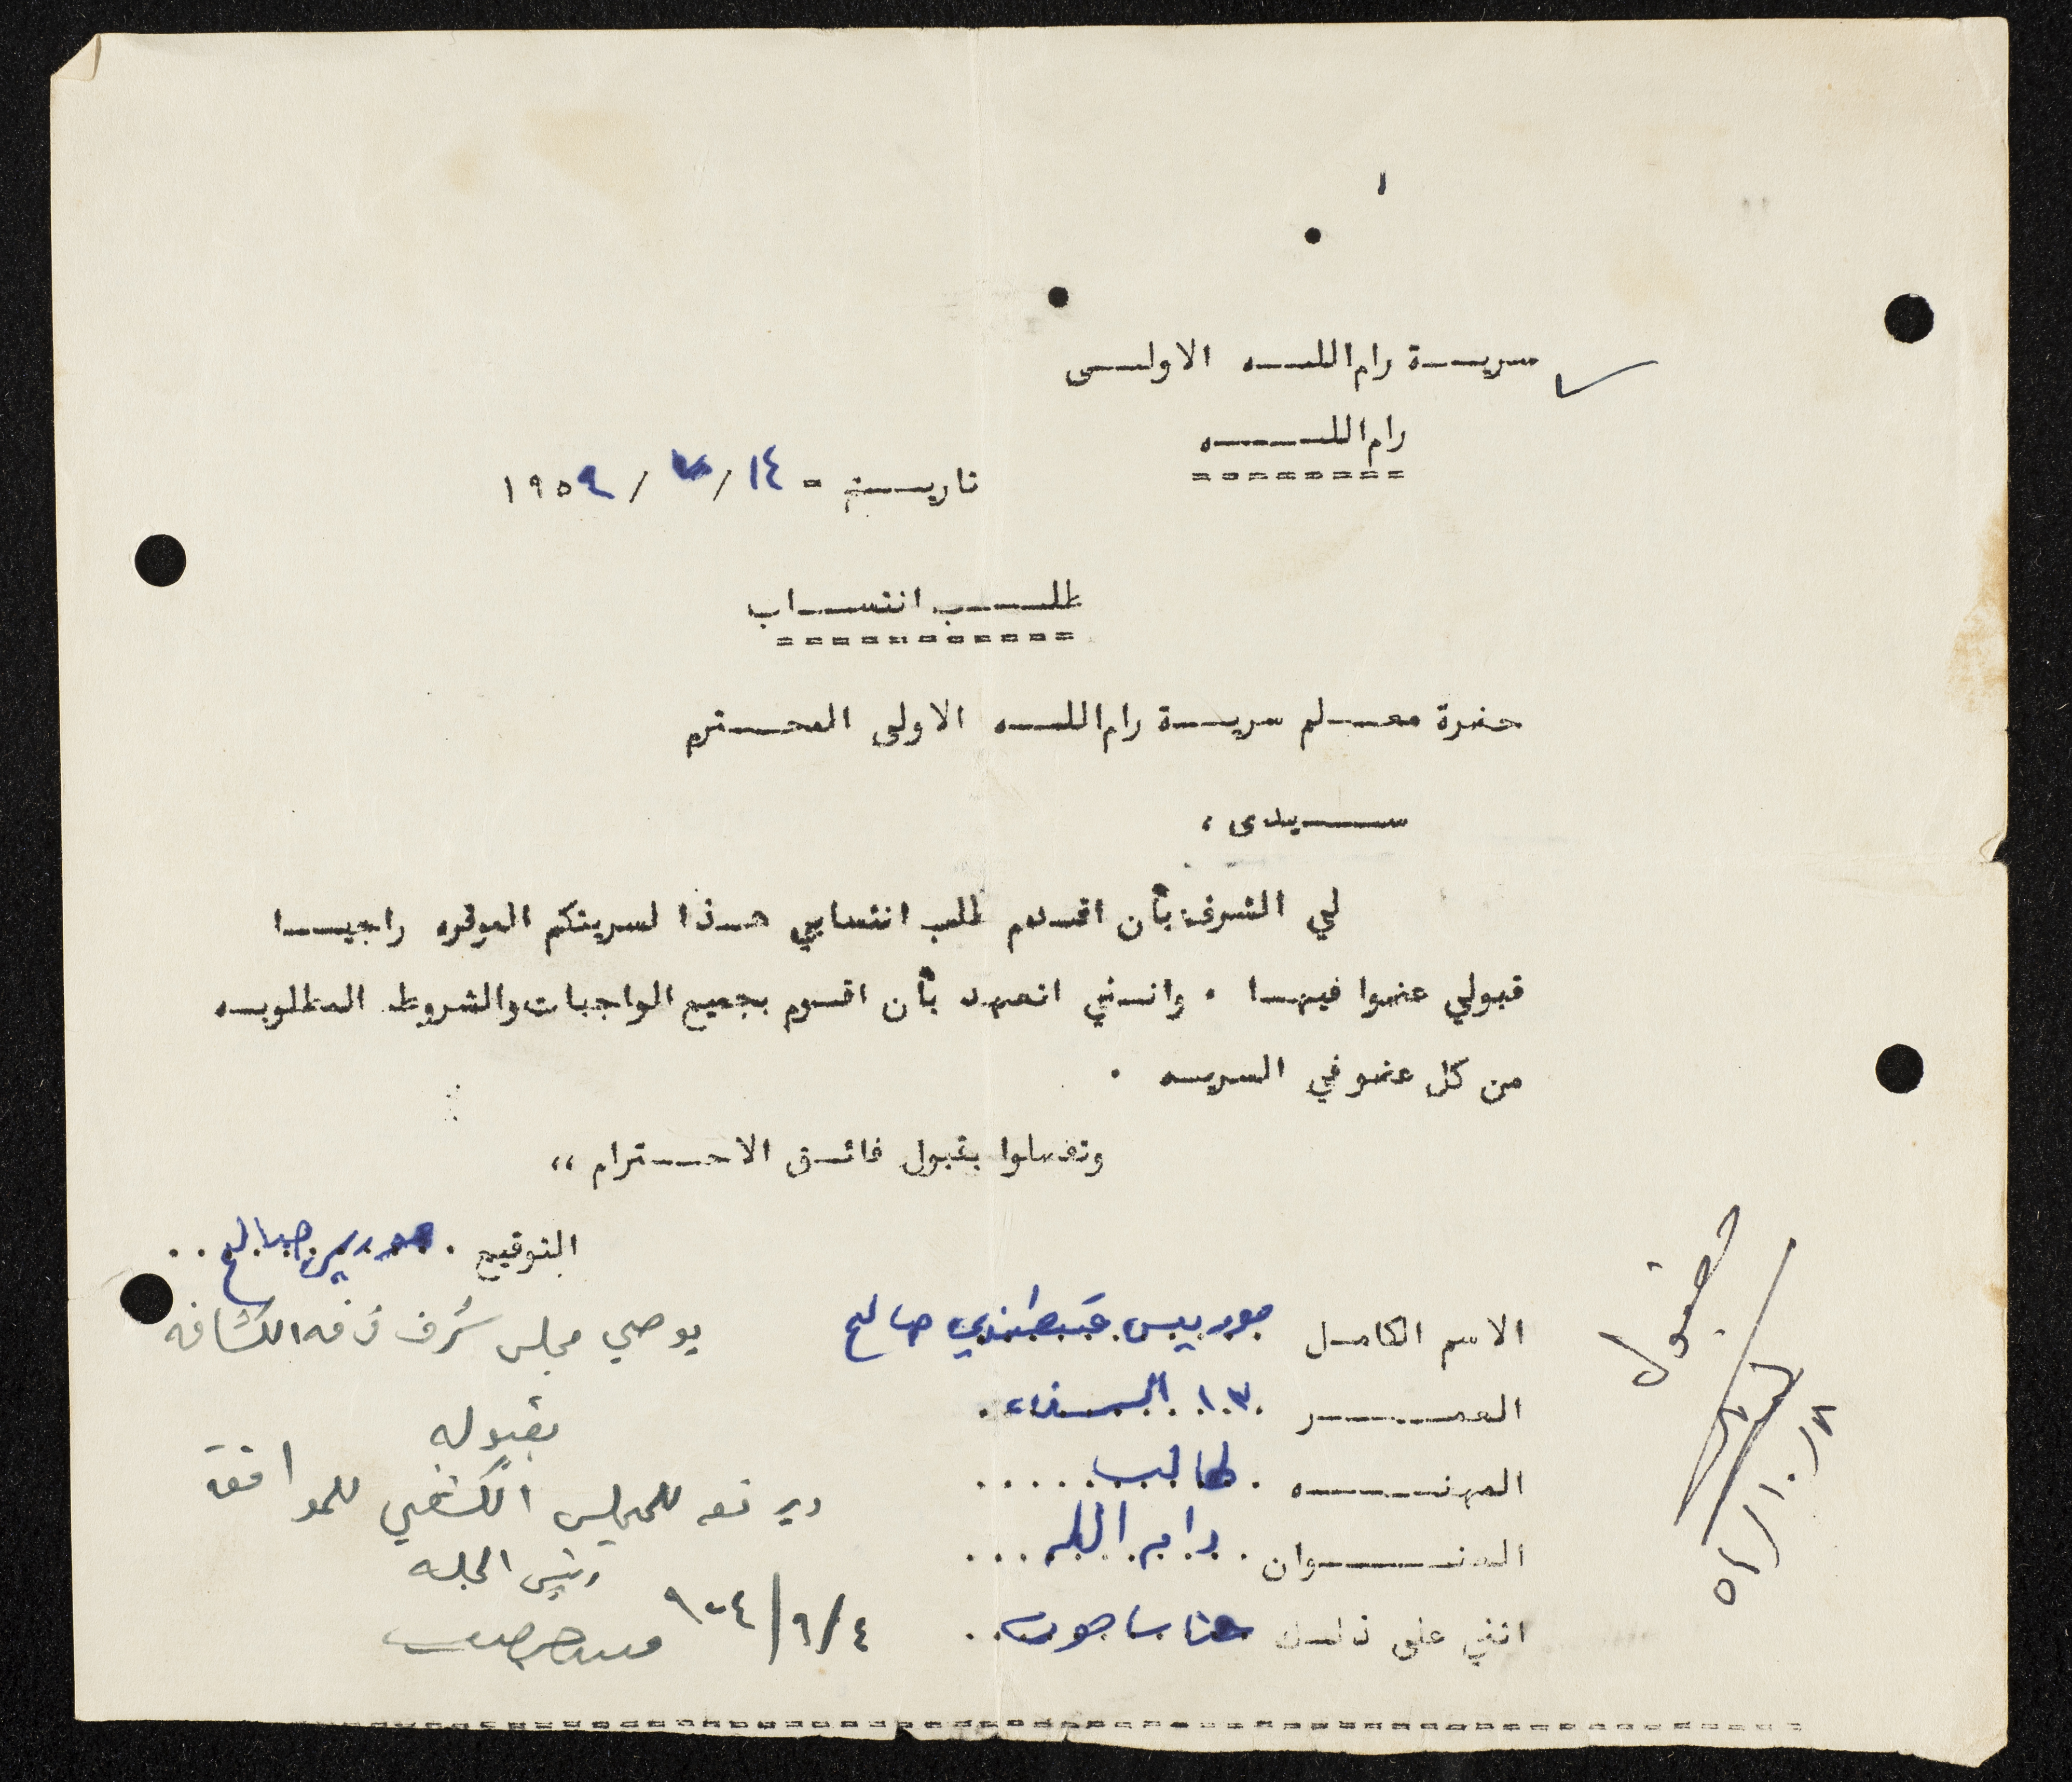 سرية رام الله الاولى
رام الله
تاريخ - ١٤ / ٧ / ١٩٥٤
طلب انتساب
حضرة معلم سرية رام الله الاولى المحترم
سيدى ،
لي الشرف بأن اقدم طلب انتسابي هذا لسريتكم الموقره راجيا
قبولي عضوا فيها . وانني اتعهد بأن اقوم بجميع الواجبات والشروط المطلوبه
من كل عضو في السريه .
وتفضلوا بقبول فائق الاحترام ،،
التوقيع . موريس صالح . .
الاسم الكامل موريس قسطندي صالح
العمر ١٣ السنه
المهنه . طالب
العنوان . رام الله
انني على ذلك حنا
يوصي مجلس شرف فرقه الكشافه
بقبوله
ويرفعه للمجلس الكشفي للموافقة
رئيس الجلسه
٤/٩/٩٥٤
مقبول